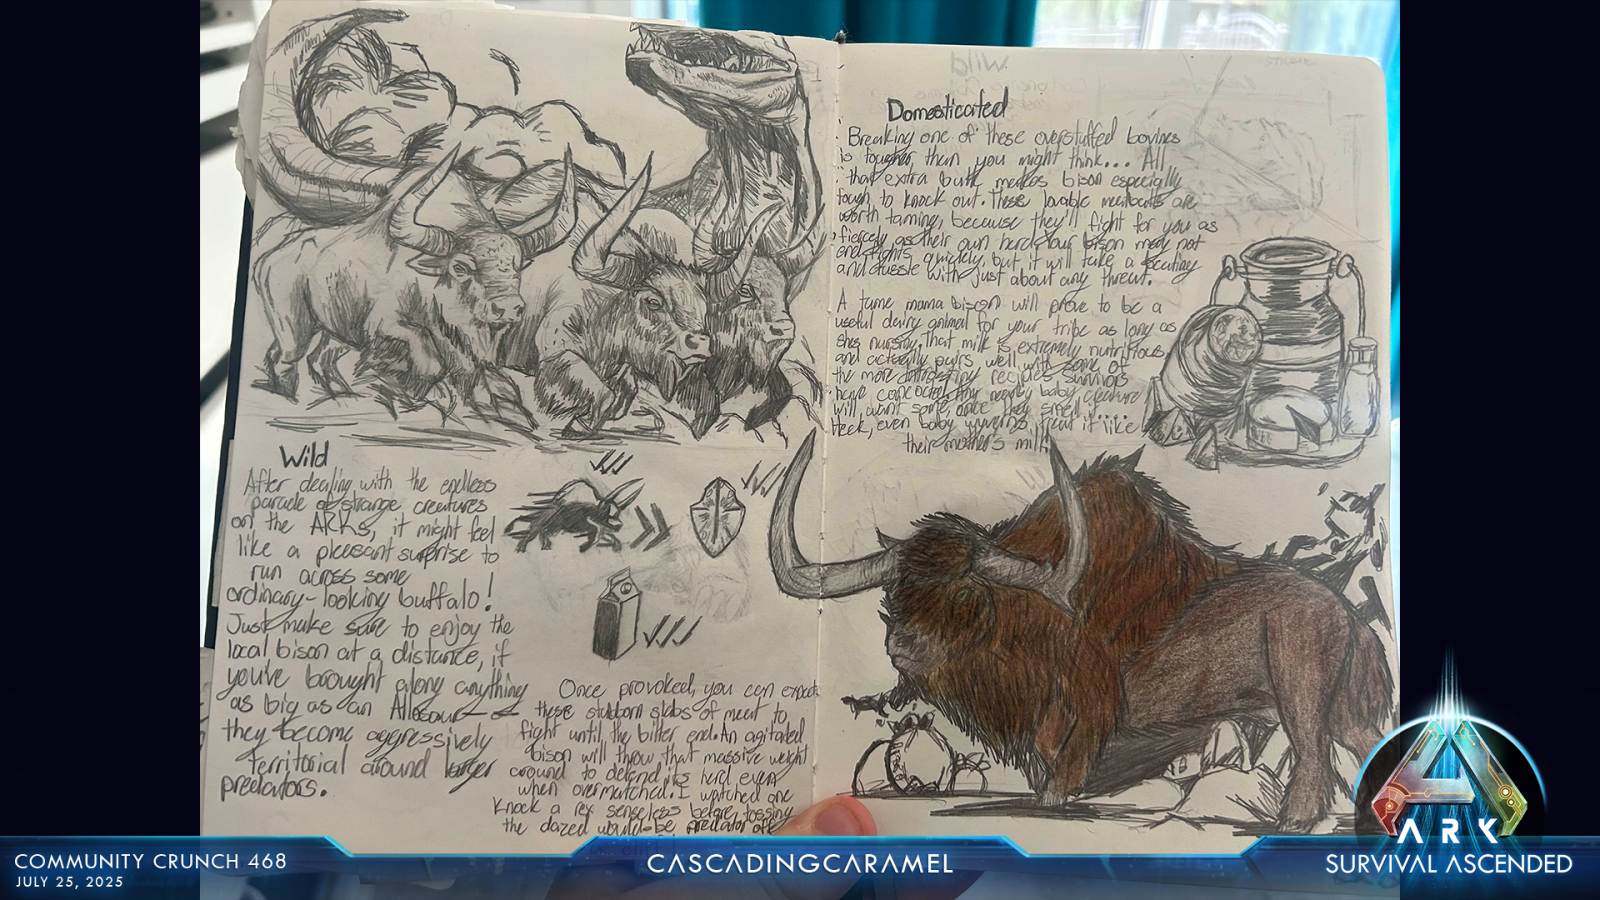 Wild
After dealing with the endless
parade of strange creatures
on the ARKs, it might feel
like a pleasant surprise to
run across some
ordinary-looking buffalo!
Just make sure to enjoy the
local bison at a distance, if
you've brought along anything
as big as an Allosaur-
they become aggressively
territorial around larger
predators.
Once provoked, you can expect
these stubborn slabs of meat to
fight until the bitter end. An agitated
bison will throw that massive weight
around to defend its herd even
when overmatched. I watched one
knock a rex senseless before tossing
the dazed would-be predator off
Domesticated
Breaking one of these overstuffed bovines
is tougher than you might think... All
that extra bulk makes bison especially
tough to knock out. These lovable meatballs are
worth taming, because they'll fight for you as
fiercely as their own herd. Your bison may not
end fights quickly, but it will take a beating
and tussle with just about any threat.
A tame mama bison will prove to be a
useful dairy animal for your tribe as long as
shes nursing. That milk is extremely nutritious
and actually pairs well with some of
the more interesting recipes survivors
have concocted. Any nearby baby creature
will want some once they smell it....
Heck, even baby wyverns treat it like
their mother's milk
COMMUNITY CRUNCH 468
JULY 25, 2025
CASCADINGCARAMEL
ARK
SURVIVAL ASCENDED